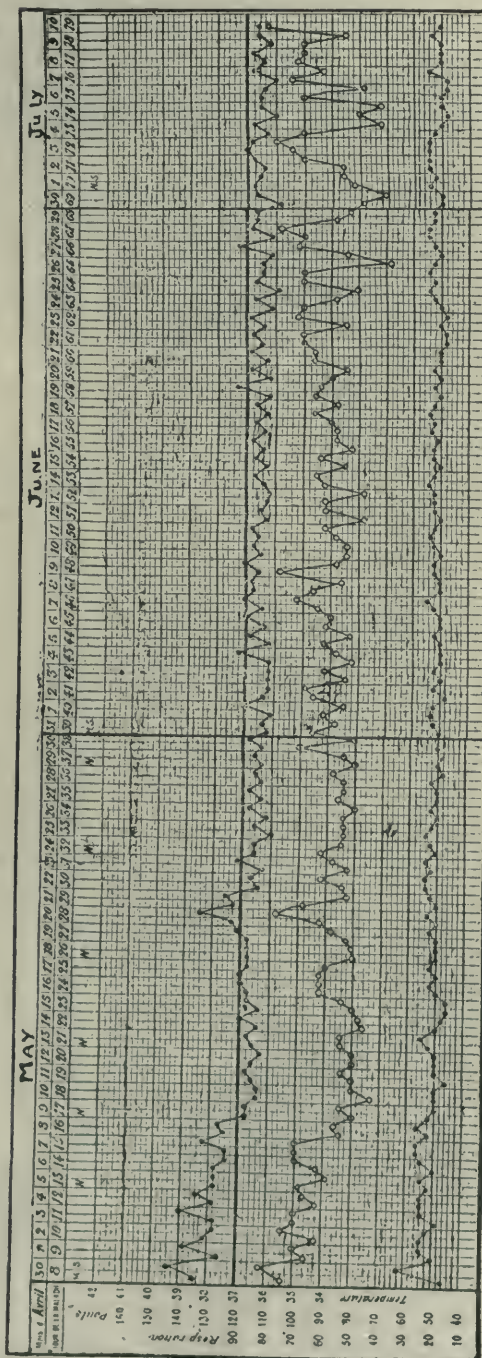 MAY JUNE JULY
Mois d'Avril 30 1 2 3 4 5 6 7 8 9 10 11 12 13 14 15 16 17 18 19 20 21 22 23 24 25 26 27 28 29 30 31 1 2 3 4 5 6 7 8 9 10 11 12 13 14 15 16 17 18 19 20 21 22 23 24 25 26 27 28 29 30 1 2 3 4 5 6 7 8 9 10
8 9 10 11 12 13 14 15 16 17 18 19 20 21 22 23 24 25 26 27 28 29 30 31 32 33 34 35 36 37 38 39 40 41 42 43 44 45 46 47 48 49 50 51 52 53 54 55 56 57 58 59 60 61 62 63 64 65 66 67 68 69 70 71 72 73 74 75 76 77 78 79
M.S M M M M M M M.S M.S
Pouls
42
41
40
39
130 38
90 120 37
80 110 36
Respiration
70 100 35
60 34
50
40
30
Temperature
20 50
10 40